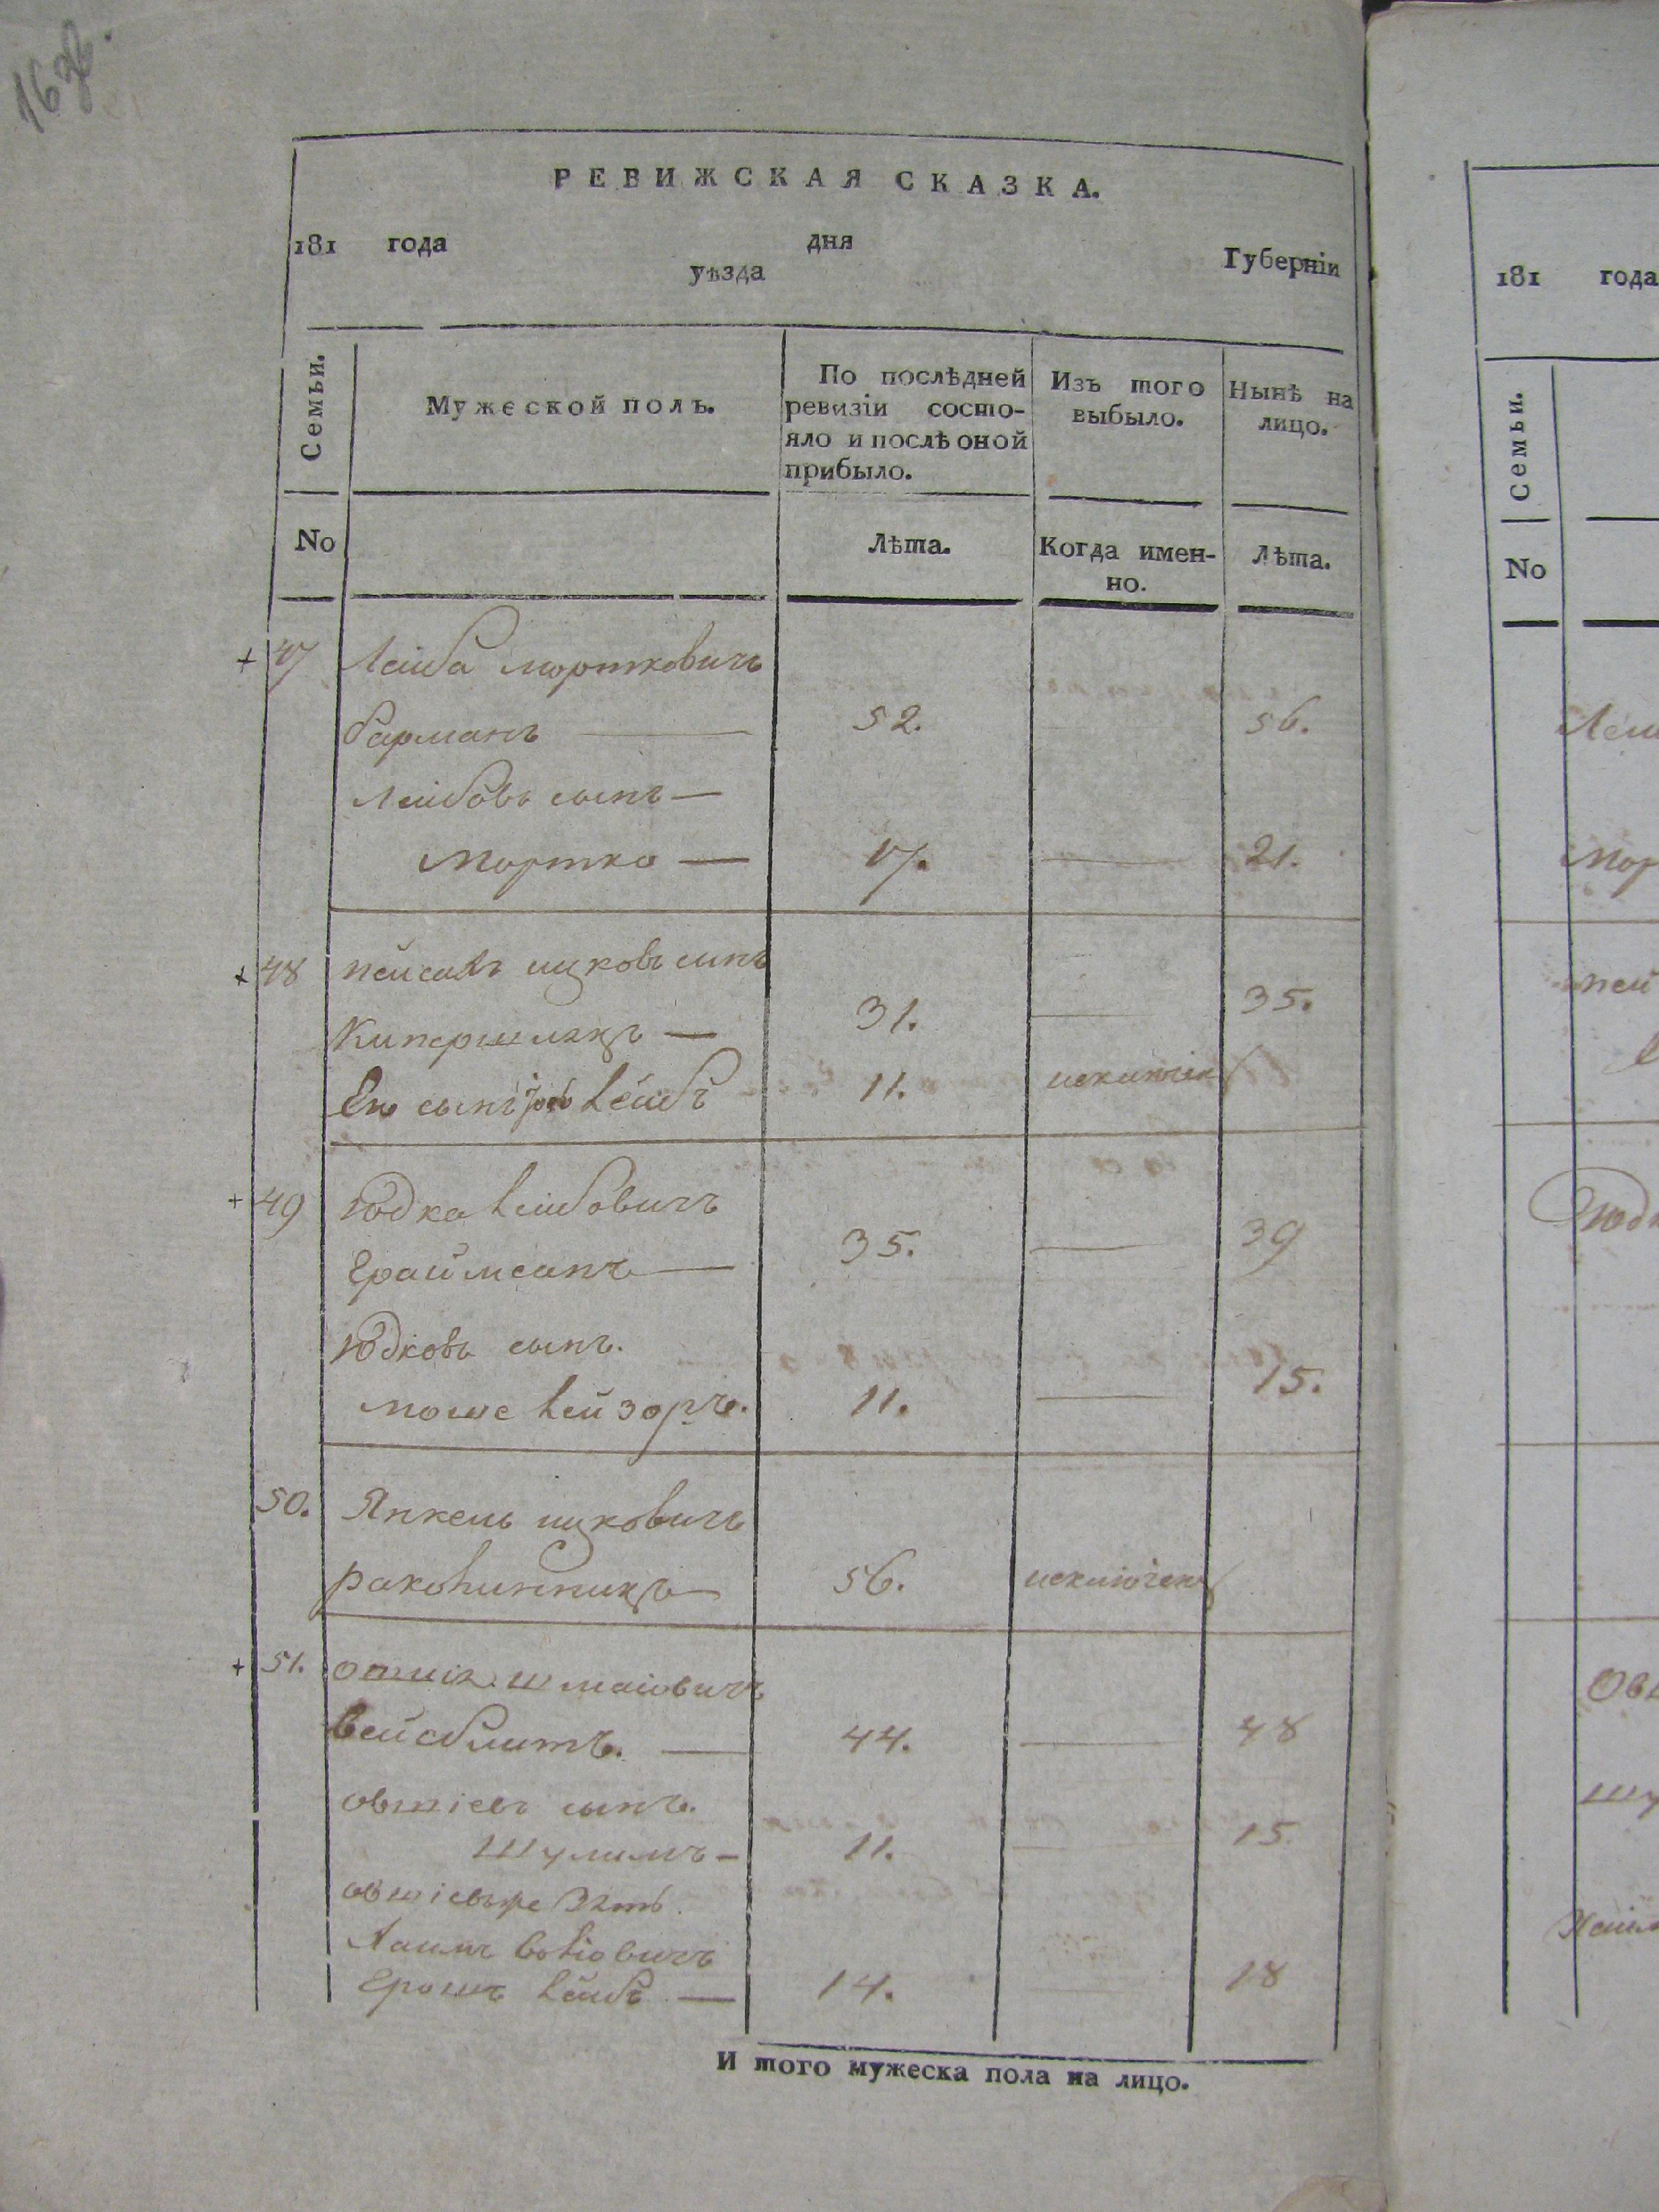 16 об.
РЕВИЖСКАЯ СКАЗКА.
181 года дня
уѣзда Губерніи
Семьи.
Мужеской полъ.
По послѣдней ревизіи состо-
яло и послѣ оной прибыло.
Изъ того выбыло.
Нынѣ на лицо.
No Лѣта. Когда имен-
но. Лѣта.
+ 47 Лейба мортковичъ
барманъ — 52. 56.
Лейбовъ сынъ —
мортко — 17. — 21.
+ 48 пейсахъ ицковъ сынъ
Купершлакъ — 31. — 35.
Его сынъ Лейбъ 11. исключенъ
+ 49 Юдка Лейбовичъ
Грайманъ — 35. — 39
Юдковъ сынъ.
моше Лейзоръ. 11. — 15.
50. Янкель ицковичъ
56. исключенъ
+ 51. Шмаіовичъ
Вейсблитъ. — 44. — 48
овшіевъ сынъ.
Шулимъ — 11. — 15
овшіевъ
Хаимъ
Ершъ Лейбъ — 14. — 18
И того мужеска пола на лицо.
181 года
Семьи.
No
Лей
мор
пей
Юдк
Овш
шу
Хаим